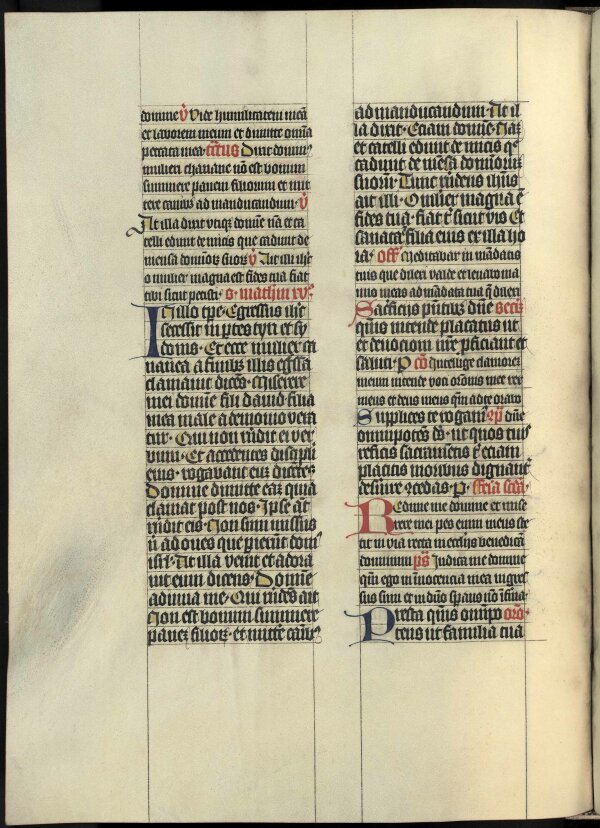 domine ꝟ Vide humilitatem meā
et laborem meum et dimitte omīa
peccata mea· Tractus Dixit domin⁹
mulieri chananee nō est bonum
summere panem filiorum et mit
tere canibus ad manducandum· ꝟ
At illa dixit utiqꝫ domine nā et ca
telli edunt de micis que cadunt de
mensa dominoꝝ suoꝝ ꝟ Ait illi ihc̄
o mulier magna est fides tua fiat
tibi sicut petisti· S· mathm̄ xv°
In illo tp̄e· Egressus ihc̄
secessit in p̄tes tyri et sy
donis· Et ecce mulier ca
nanea a finibus illis eḡssa
clamauit dicēs· Miserere
mei domine fili dauid· filia
mea male a demonio vexa
tur· Qui non rn̄dit ei ver
bum· Et accedentes discipuli
eius· rogabant eum dicētes·
Domine dimitte eam quia
clamat post nos· Ipse aūt
rn̄dit eis· Non sum missus
n̄ ad oues que perierūt dom⁹
isrl̄· At illa venit et adora
uit eum dicens· Domine
adiuua me· Qui rn̄des ait
Non est bonum summere
panem filioꝝ· et mittē canib⁹
ad manducandum· At il
la dixit· Etiam domīe· Nam
et catelli edunt de micis q̄
cadunt de mēsa domīorum
suorū· Tunc rn̄dens ihūs
ait illi· O mulier magna ē
fides tua· fiat t̄ sicut vis Et
sanata ē filia eius ex illa ho
ra· Off Meditabar in mādatis
tuis que dilexi valde et leuabo ma
nus meas ad mādata tua q̄ dilexi
Sacrificiis p̄ntibus dn̄e Secrꝫ
quīs intende placatus ut
et deuotioni nr̄e proficiant et
saluti· P Cō Intellige clamorem
meum intende voci oronis mee rex
meus et deus meus qm̄ ad te orabo
Supplices te rogam⁹ dn̄e
omnipotēs ds̄· ut quos tuis
reficis sacramētis t̄ etiam
placitis moribus dignant̄
deseruire ꝯcedas· P· Feria scd̄a·
Redime me domine et mise
rere mei pes enim meus ste
tit in via recta in ecclīis benedicā
dominum ps̄ Iudica me domine
qm̄ ego in innocencia mea ingres
sus sum et in dn̄o sperans nō īfirma
Presta quīs omīpo orō·
tens ut familia tua